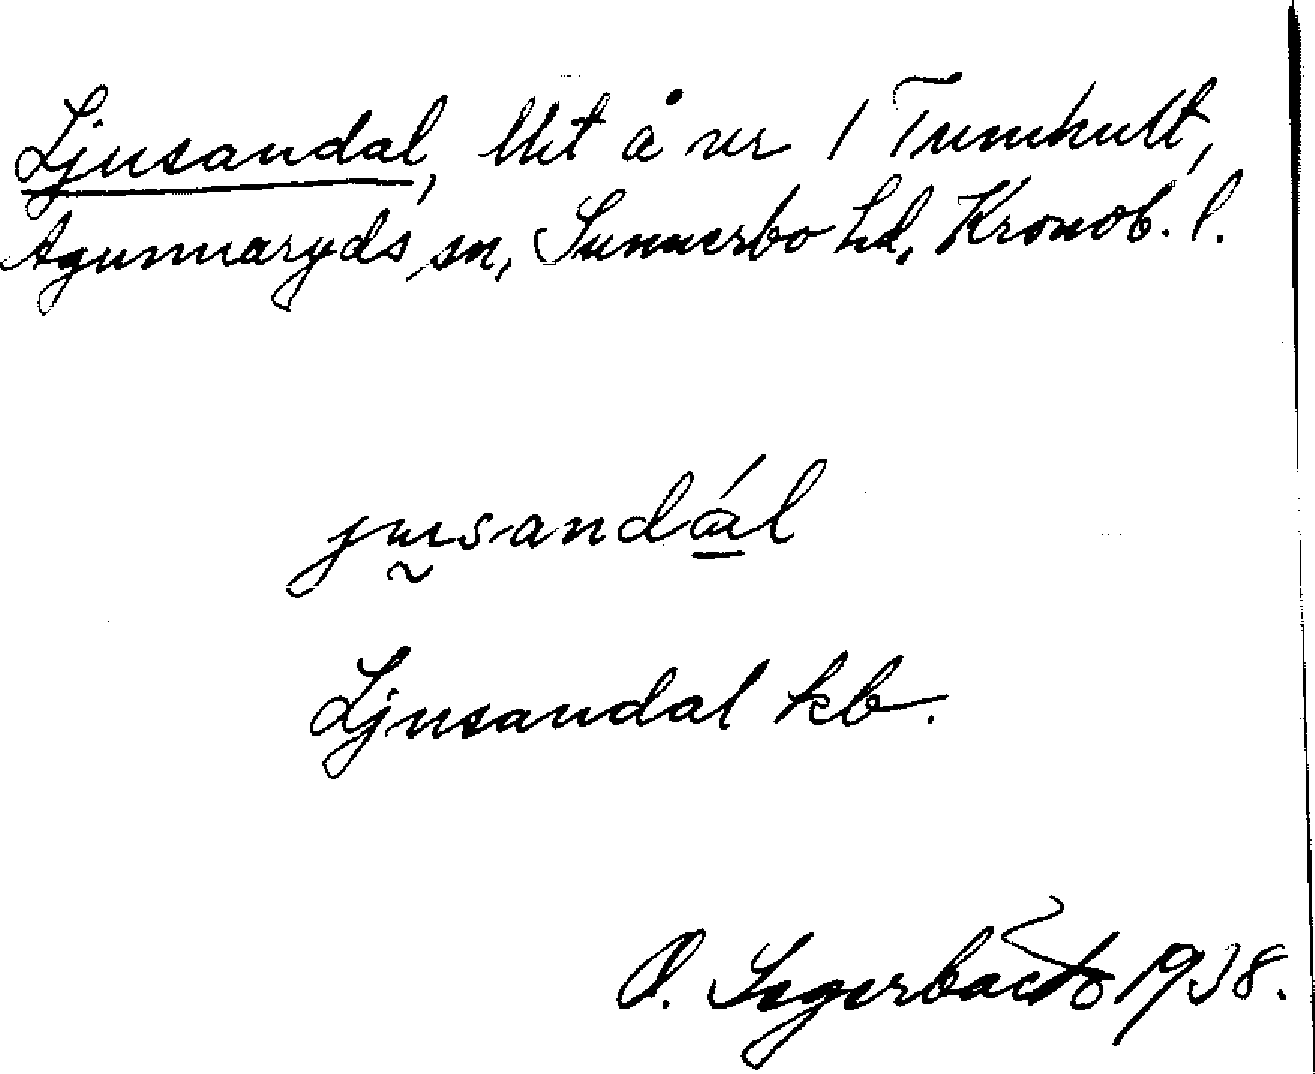 Ljusandal, lht å nr 1 Tunnhult,
Agunnaryds sn, Sunnerbo hd, Kronob. l.
jusandál
Ljusandal kb.
O. Segerbäck 1938.